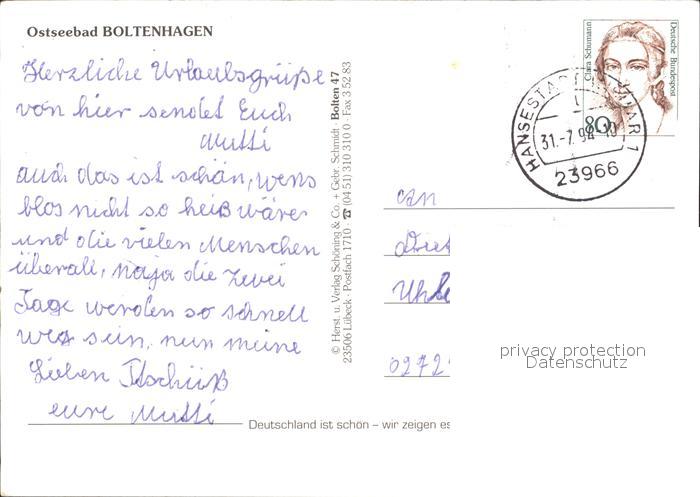 Ostseebad BOLTENHAGEN
Herzliche Urlaubsgrüße
von hier sendet Euch
Mutti
auch das ist schön, wens
blos nicht so heiß wäre
und die vielen Menschen
überall, naja die zwei
Tage werden so schnell
weg sein, nun meine
Lieben Tschüß
eure Mutti
© Herst. u. Verlag Schöning & Co. + Gebr. Schmidt · Bolten 47
23506 Lübeck · Postfach 1710 · ☎ (04 51) 310 310 0 · Fax 3 52 83
Deutschland ist schön – wir zeigen es
Clara Schumann
Deutsche Bundespost
80
HANSESTADT WISMAR 1
31.-7.94-10
23966
An
Diet
Uhle
0972
privacy protection
Datenschutz